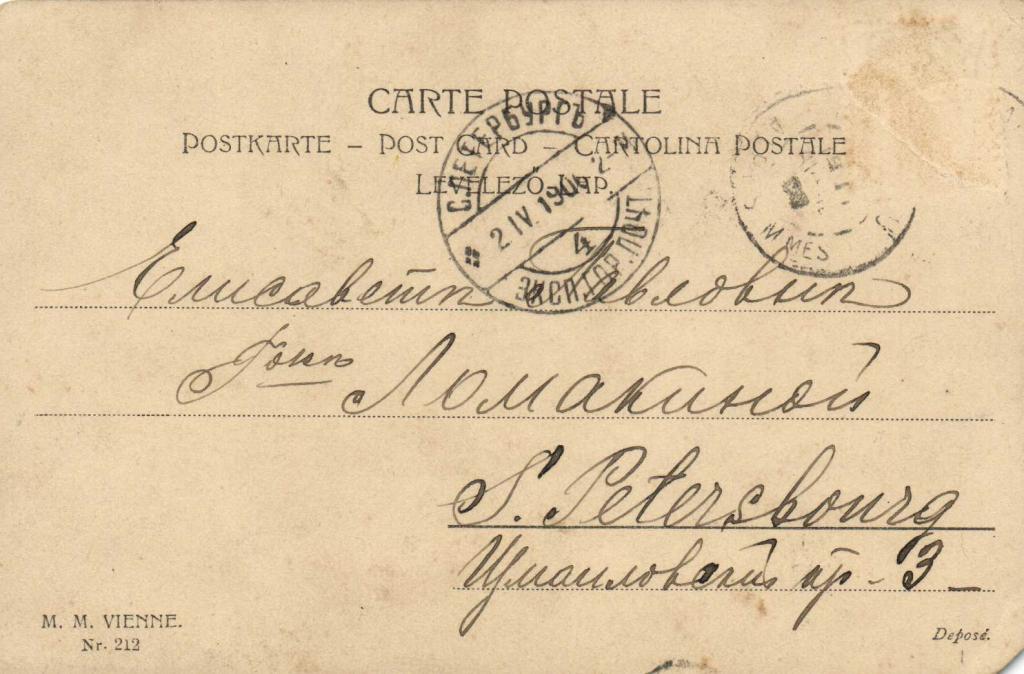 CARTE POSTALE
POSTKARTE – POST CARD – CARTOLINA POSTALE
LEVELEZŐ-LAP.
С.ПЕТЕРБУРГЪ
2 IV. 190
4
ЭКСП. ГОР. ПОЧТ
Елисаветѣ Павловнѣ
Ломакиной
S. Petersbourg
Измаиловскій пр- 3
M. M. VIENNE.
Nr. 212
Deposé.